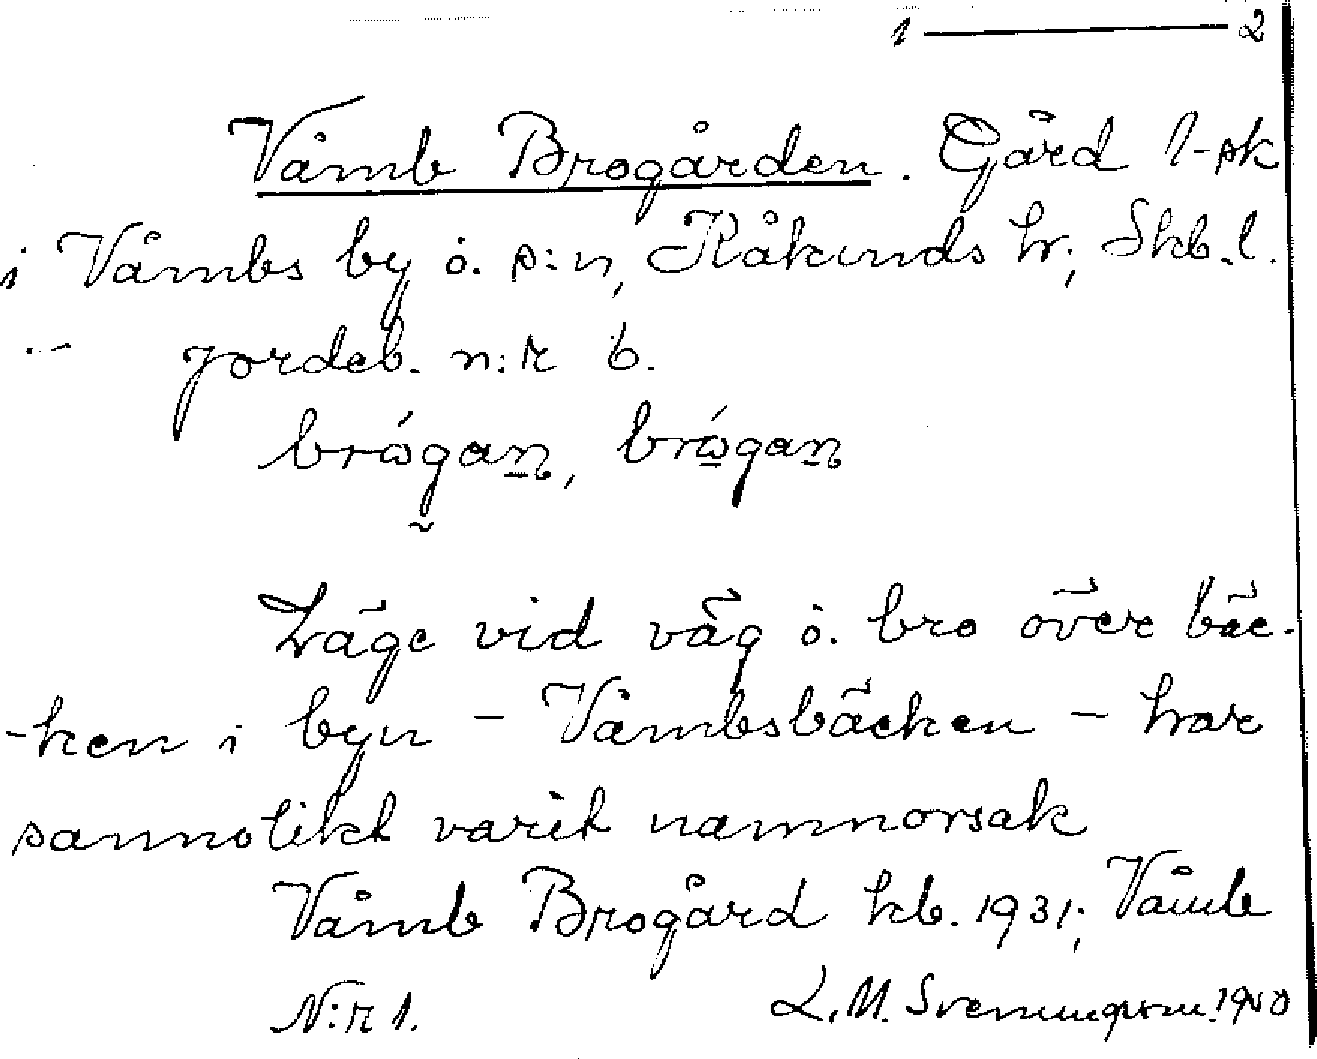 1 — 2
Våmb Brogården. Gård 1-sk
i Våmbs by o. s:n, Kåkinds hr; Skb.l.
Jordeb. n:r 6.
brógan, brógan
Läge vid väg o. bro över bäc-
-ken i byn - Våmbsbäcken - har
sannolikt varit namnorsak
Våmb Brogård kb. 1931; Våmb
N:r 1. L. M. Svenungsson. 1950